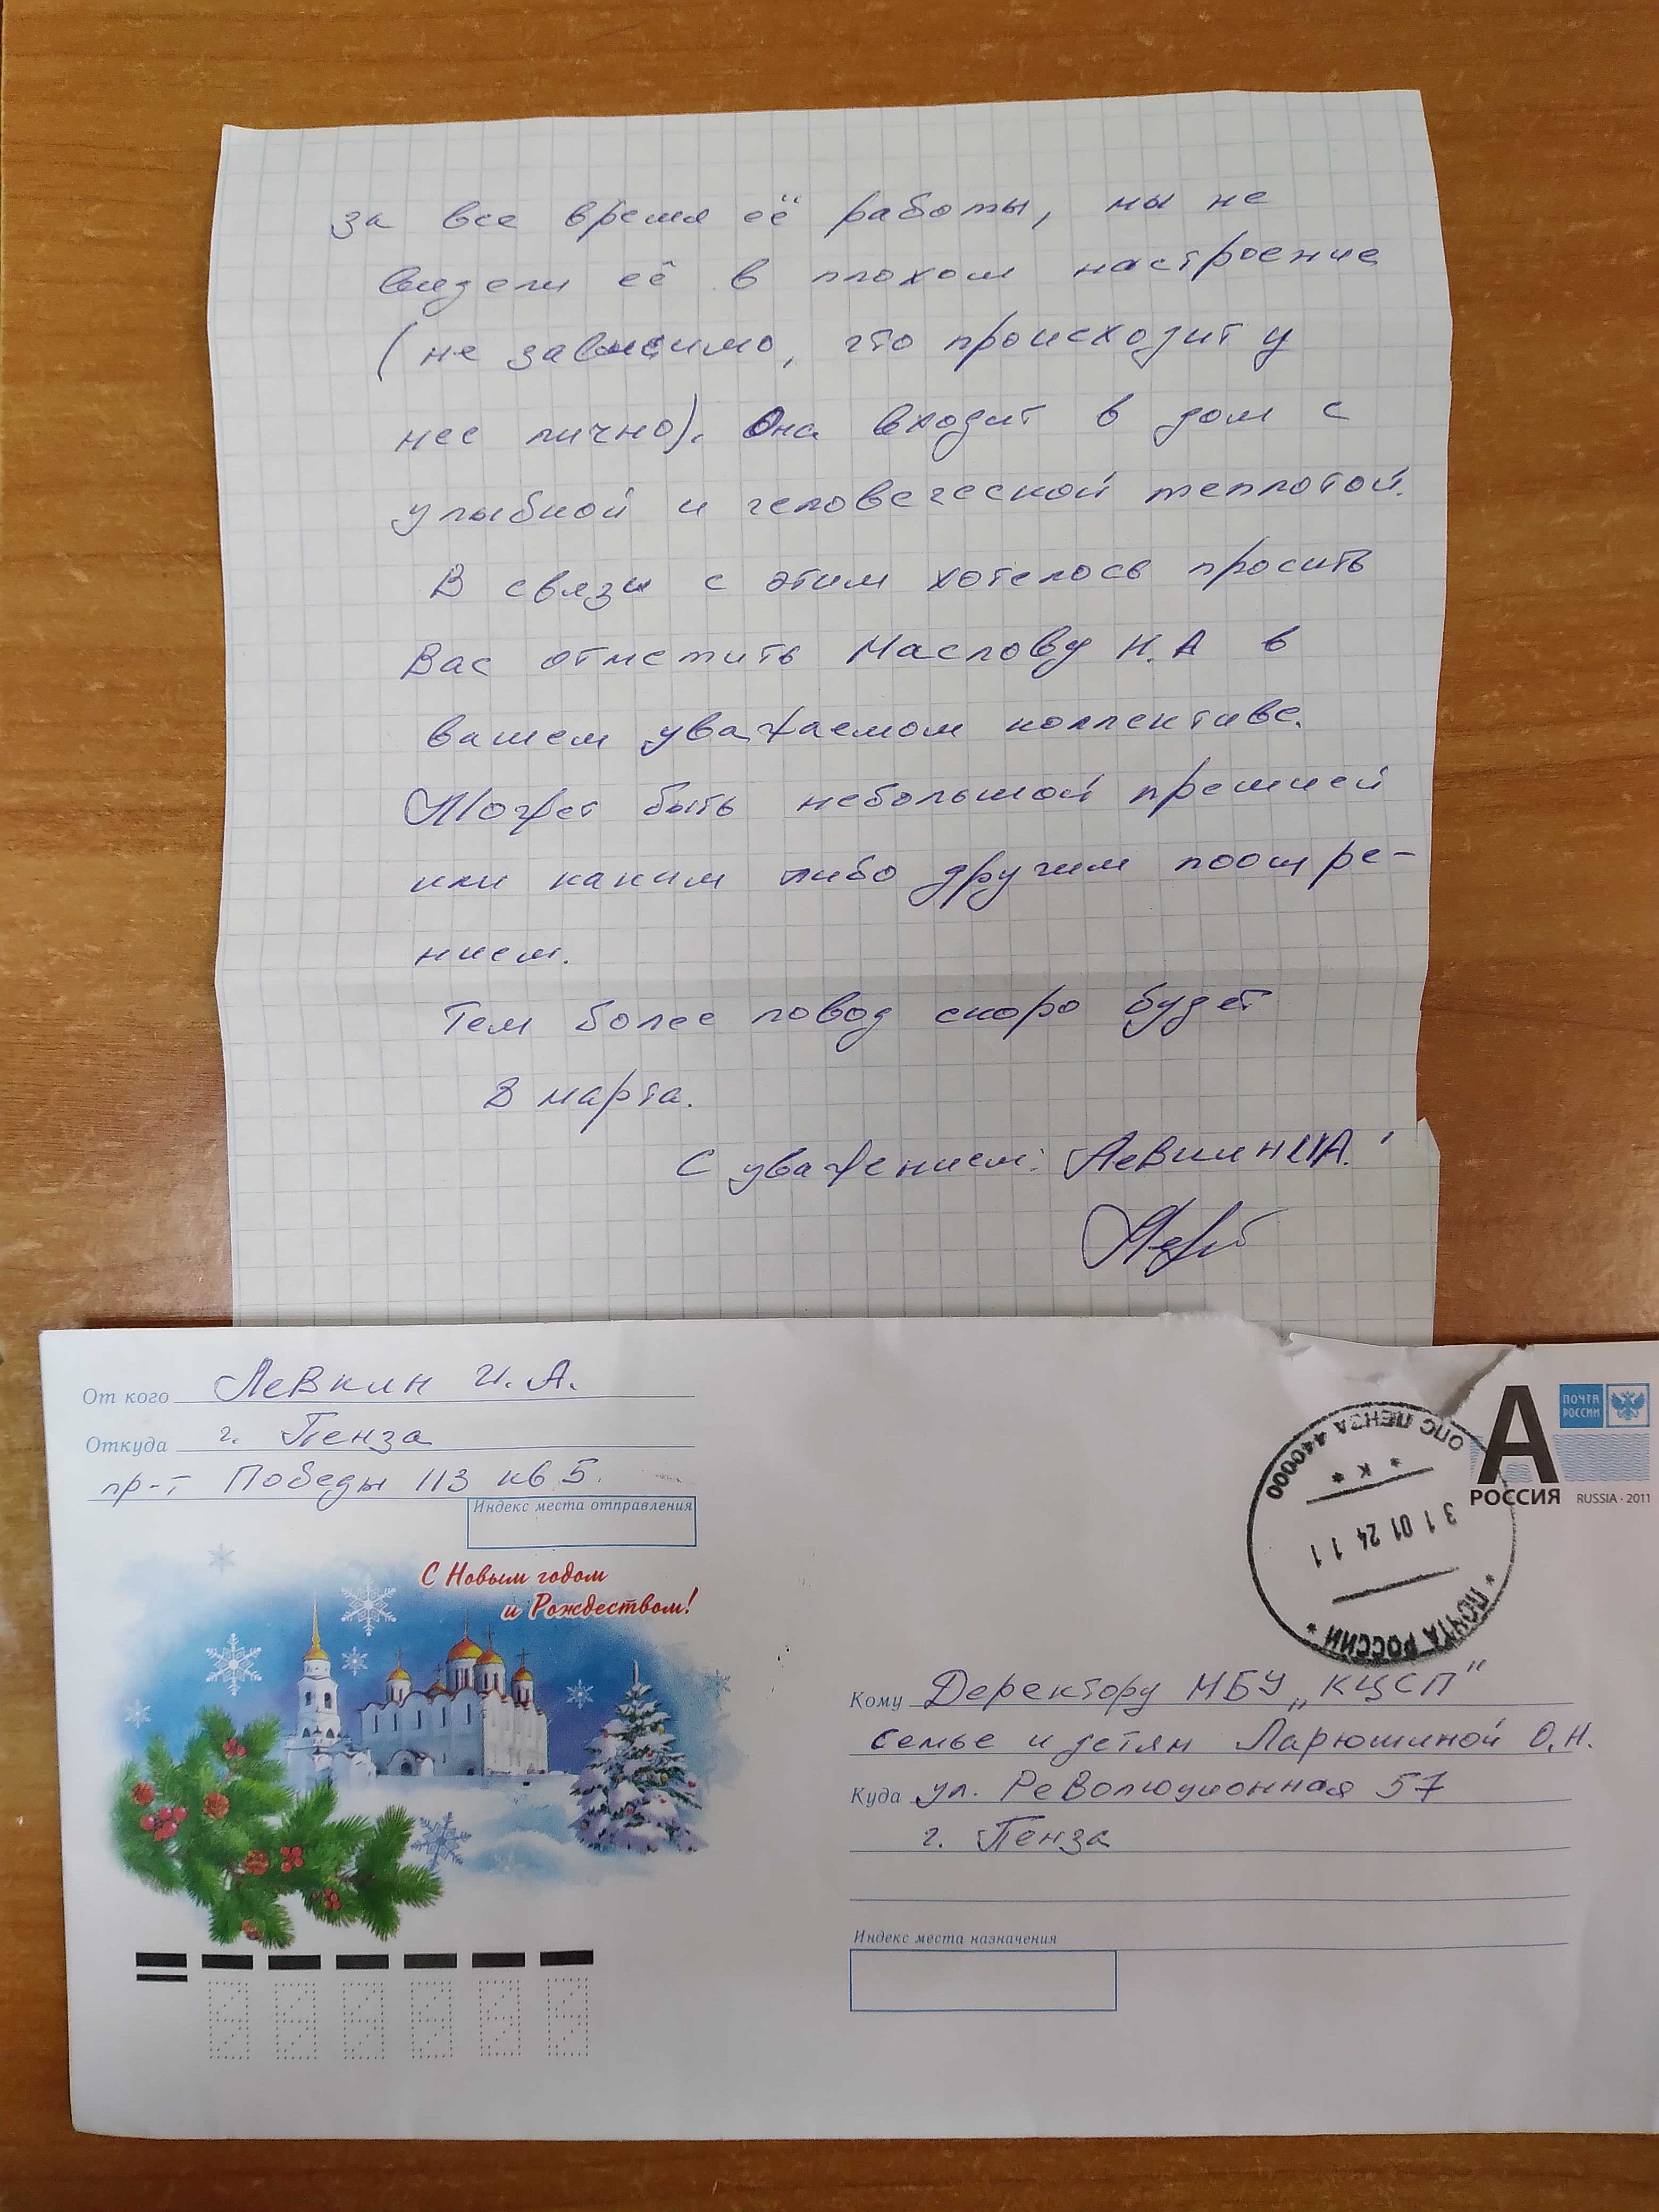 за все время её работы, мы не
видели её в плохом настроение
(не зависимо, что происходит у
нее лично). Она входит в дом с
улыбкой и человеческой теплотой.
В связи с этим хотелось просить
Вас отметить Маслову Н.А в
вашем уважаемом коллективе.
Может быть небольшой премией
или каким либо другим поощре-
нием.
Тем более повод скоро будет
8 марта.
С уважением: Левкин И.А.
От кого Левкин И. А.
Откуда г. Пенза
пр-т Победы 113 кв 5.
Индекс места отправления
С Новым годом
и Рождеством!
ПОЧТА
РОССИИ
А
РОССИЯ RUSSIA · 2011
ОПС ПЕНЗА 440000
* К *
31 01 24 11
* ПОЧТА РОССИИ *
Кому Деректору МБУ „КЦСП"
семье и детям Ларюшиной О.Н.
Куда ул. Революционная 57
г. Пенза
Индекс места назначения